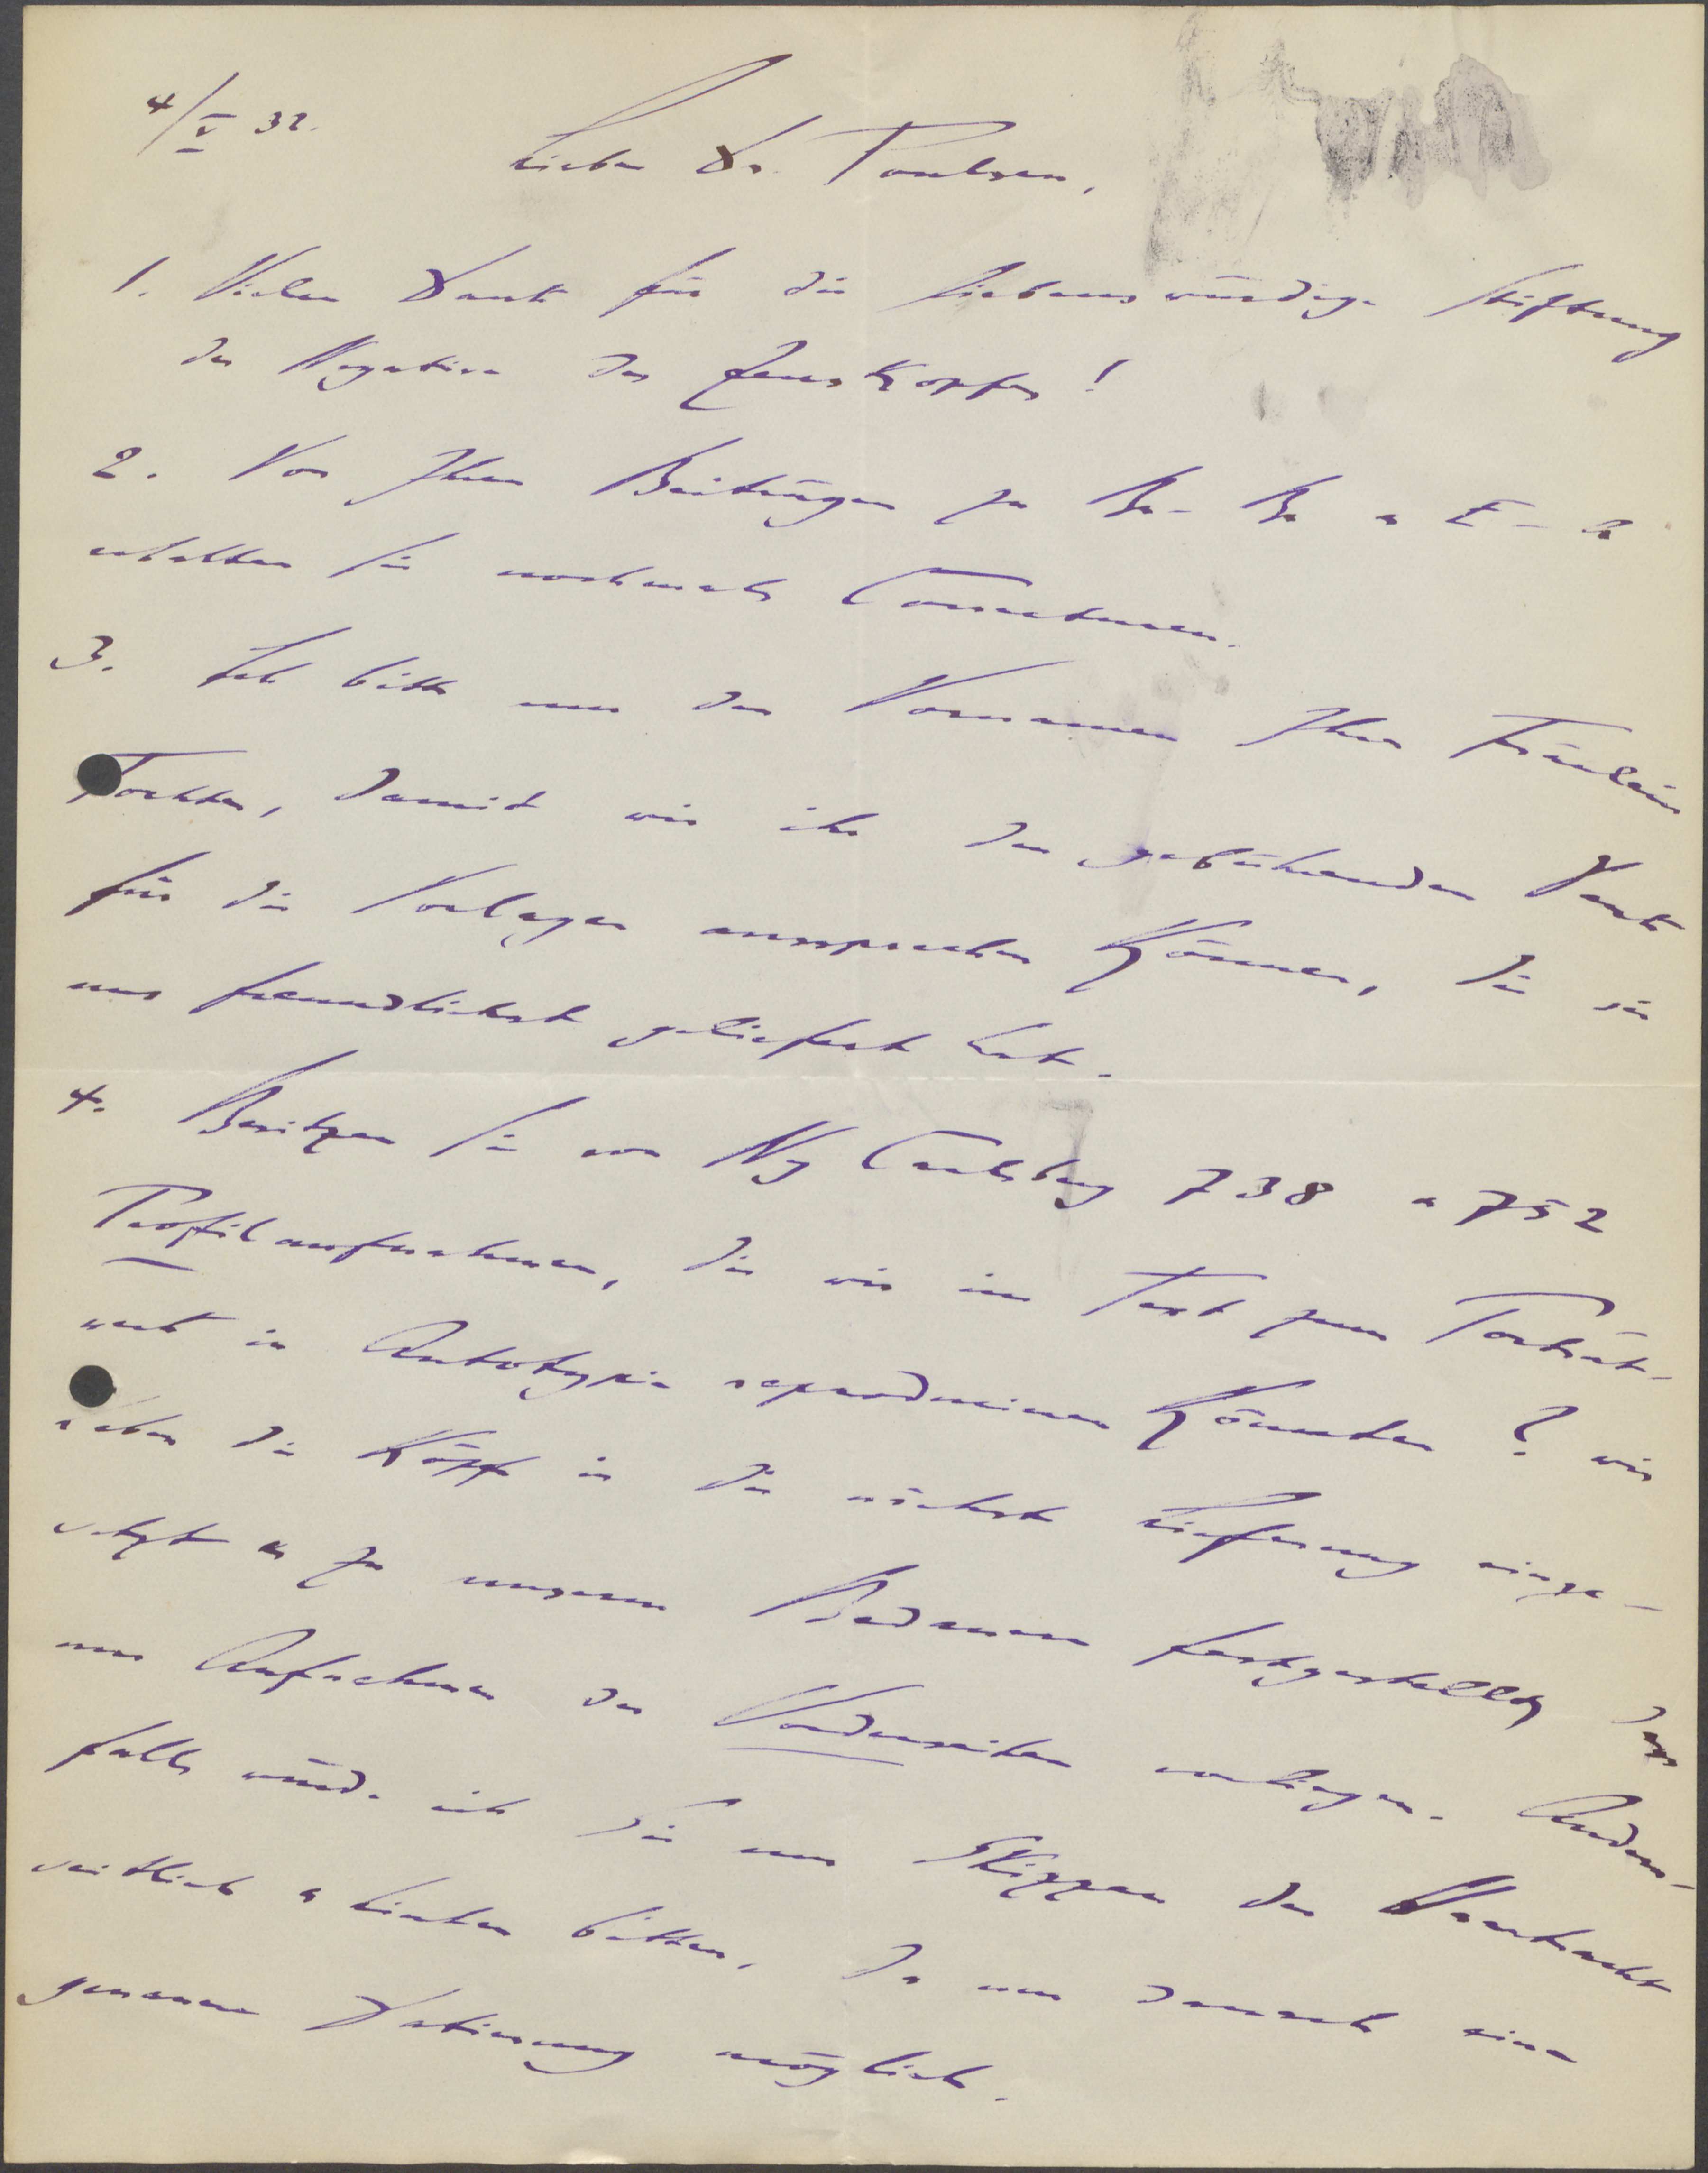 4/V 32.
Lieber Dr. Poulsen,
1. Vielen Dank für die liebenswürdige Stiftung
der Negative des Zeuskopfes!
2. Von Ihren Beiträgen zu Br-Br u E-A
erhalten Sie nochmals Correcturen.
3. Ich bitte um den Vornamen Ihrer Fräulein
Tochter, damit wir ihr den gebührenden Dank
für die Vorlagen aussprechen können, die sie
uns freundlichst geliefert hat.
4. Besitzen Sie von Ny Carlsberg 738 u 752
Profilaufnahmen, die wir im Text zum Porträt-
werk in Autotypie reproducieren könnten? Wir
haben die Köpfe in die nächste Lieferung einge-
setzt u zu unserem Bedauern festgestellt, dass
nur Aufnahmen der Vorderseiten vorliegen. Andern-
falls würde ich Sie um Skizzen der Haartracht
seitlich u hinten bitten, da nur danach eine
genauere Datierung möglich.